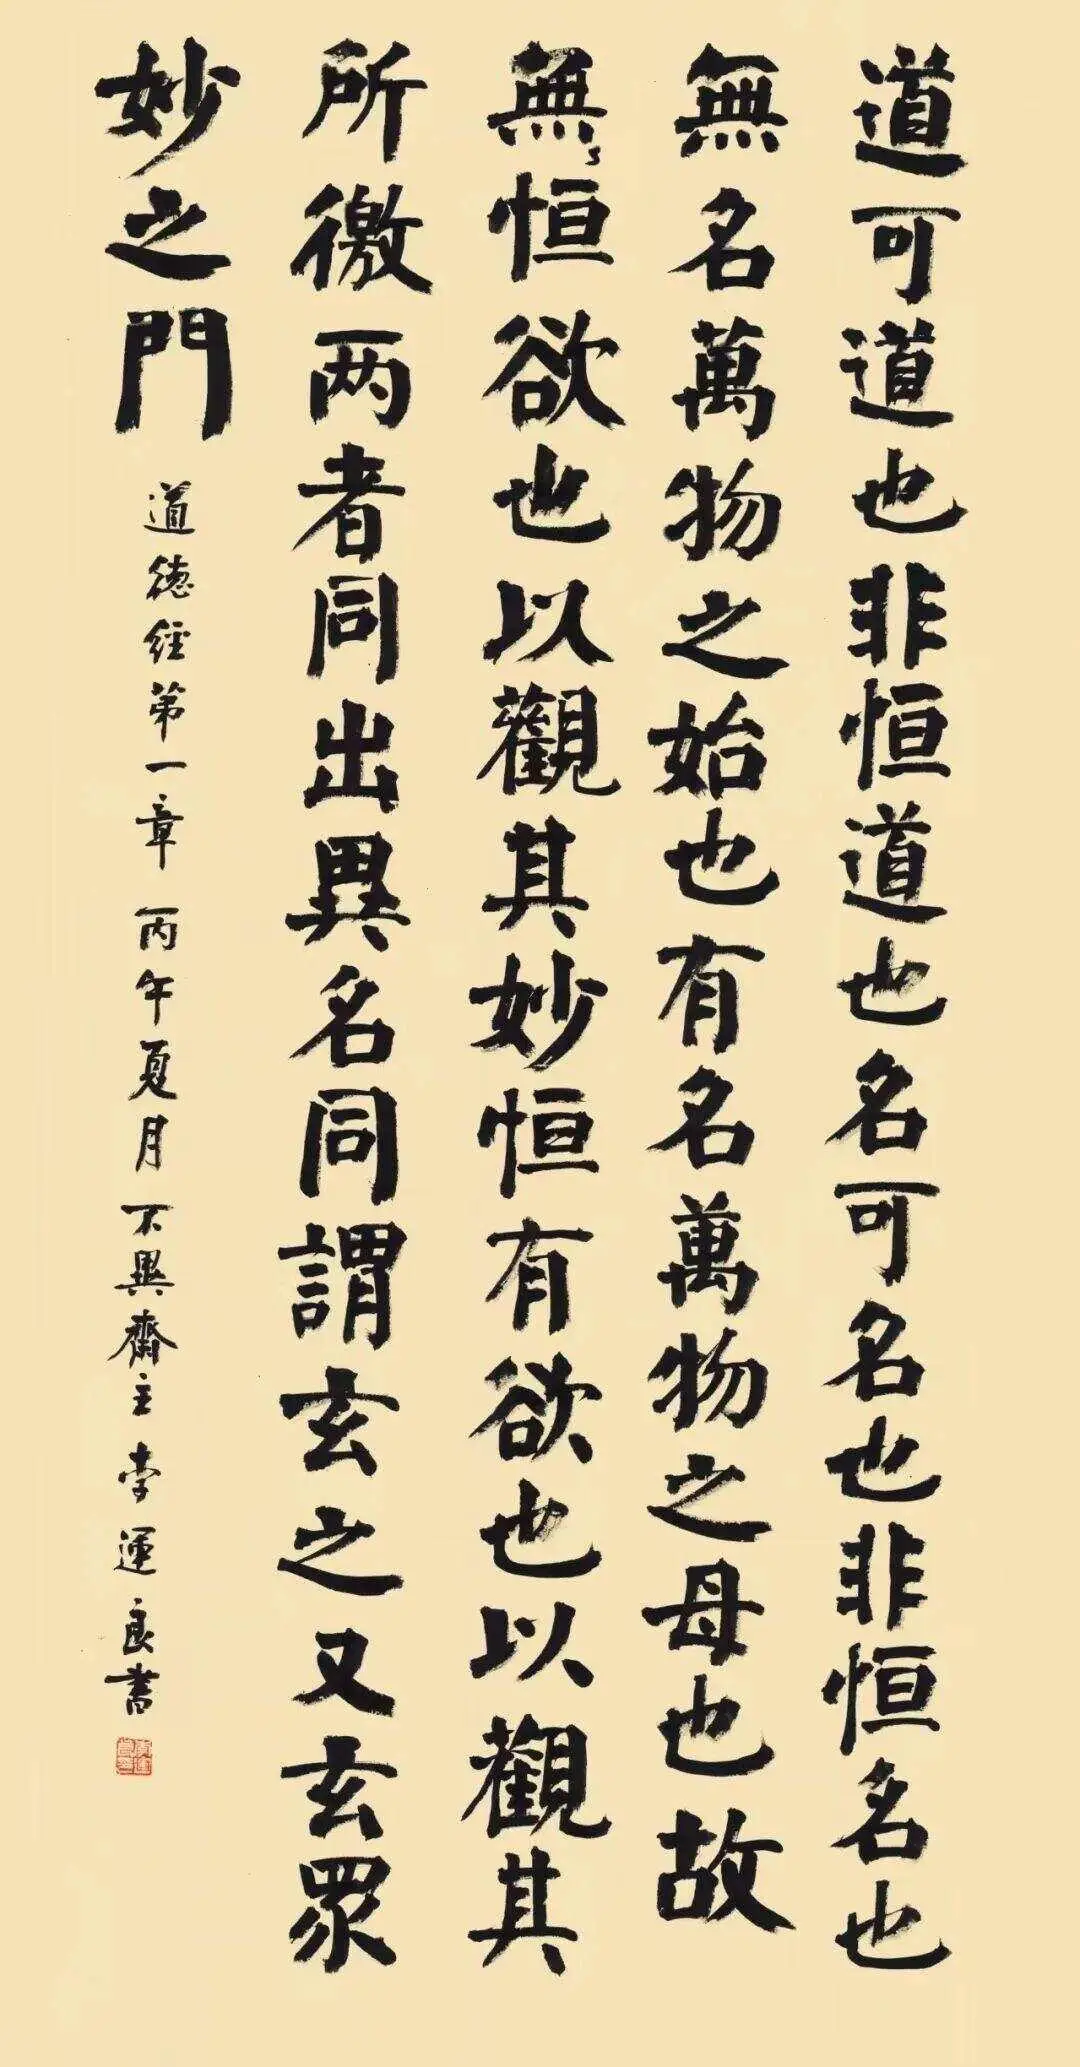 道可道也非恒道也名可名也非恒名也
無名萬物之始也有名萬物之母也故
無恒欲也以觀其妙恒有欲也以觀其
所徼两者同出異名同謂玄之又玄眾
妙之門
道徳經第一章 丙午夏月 不異齋主 李運良書